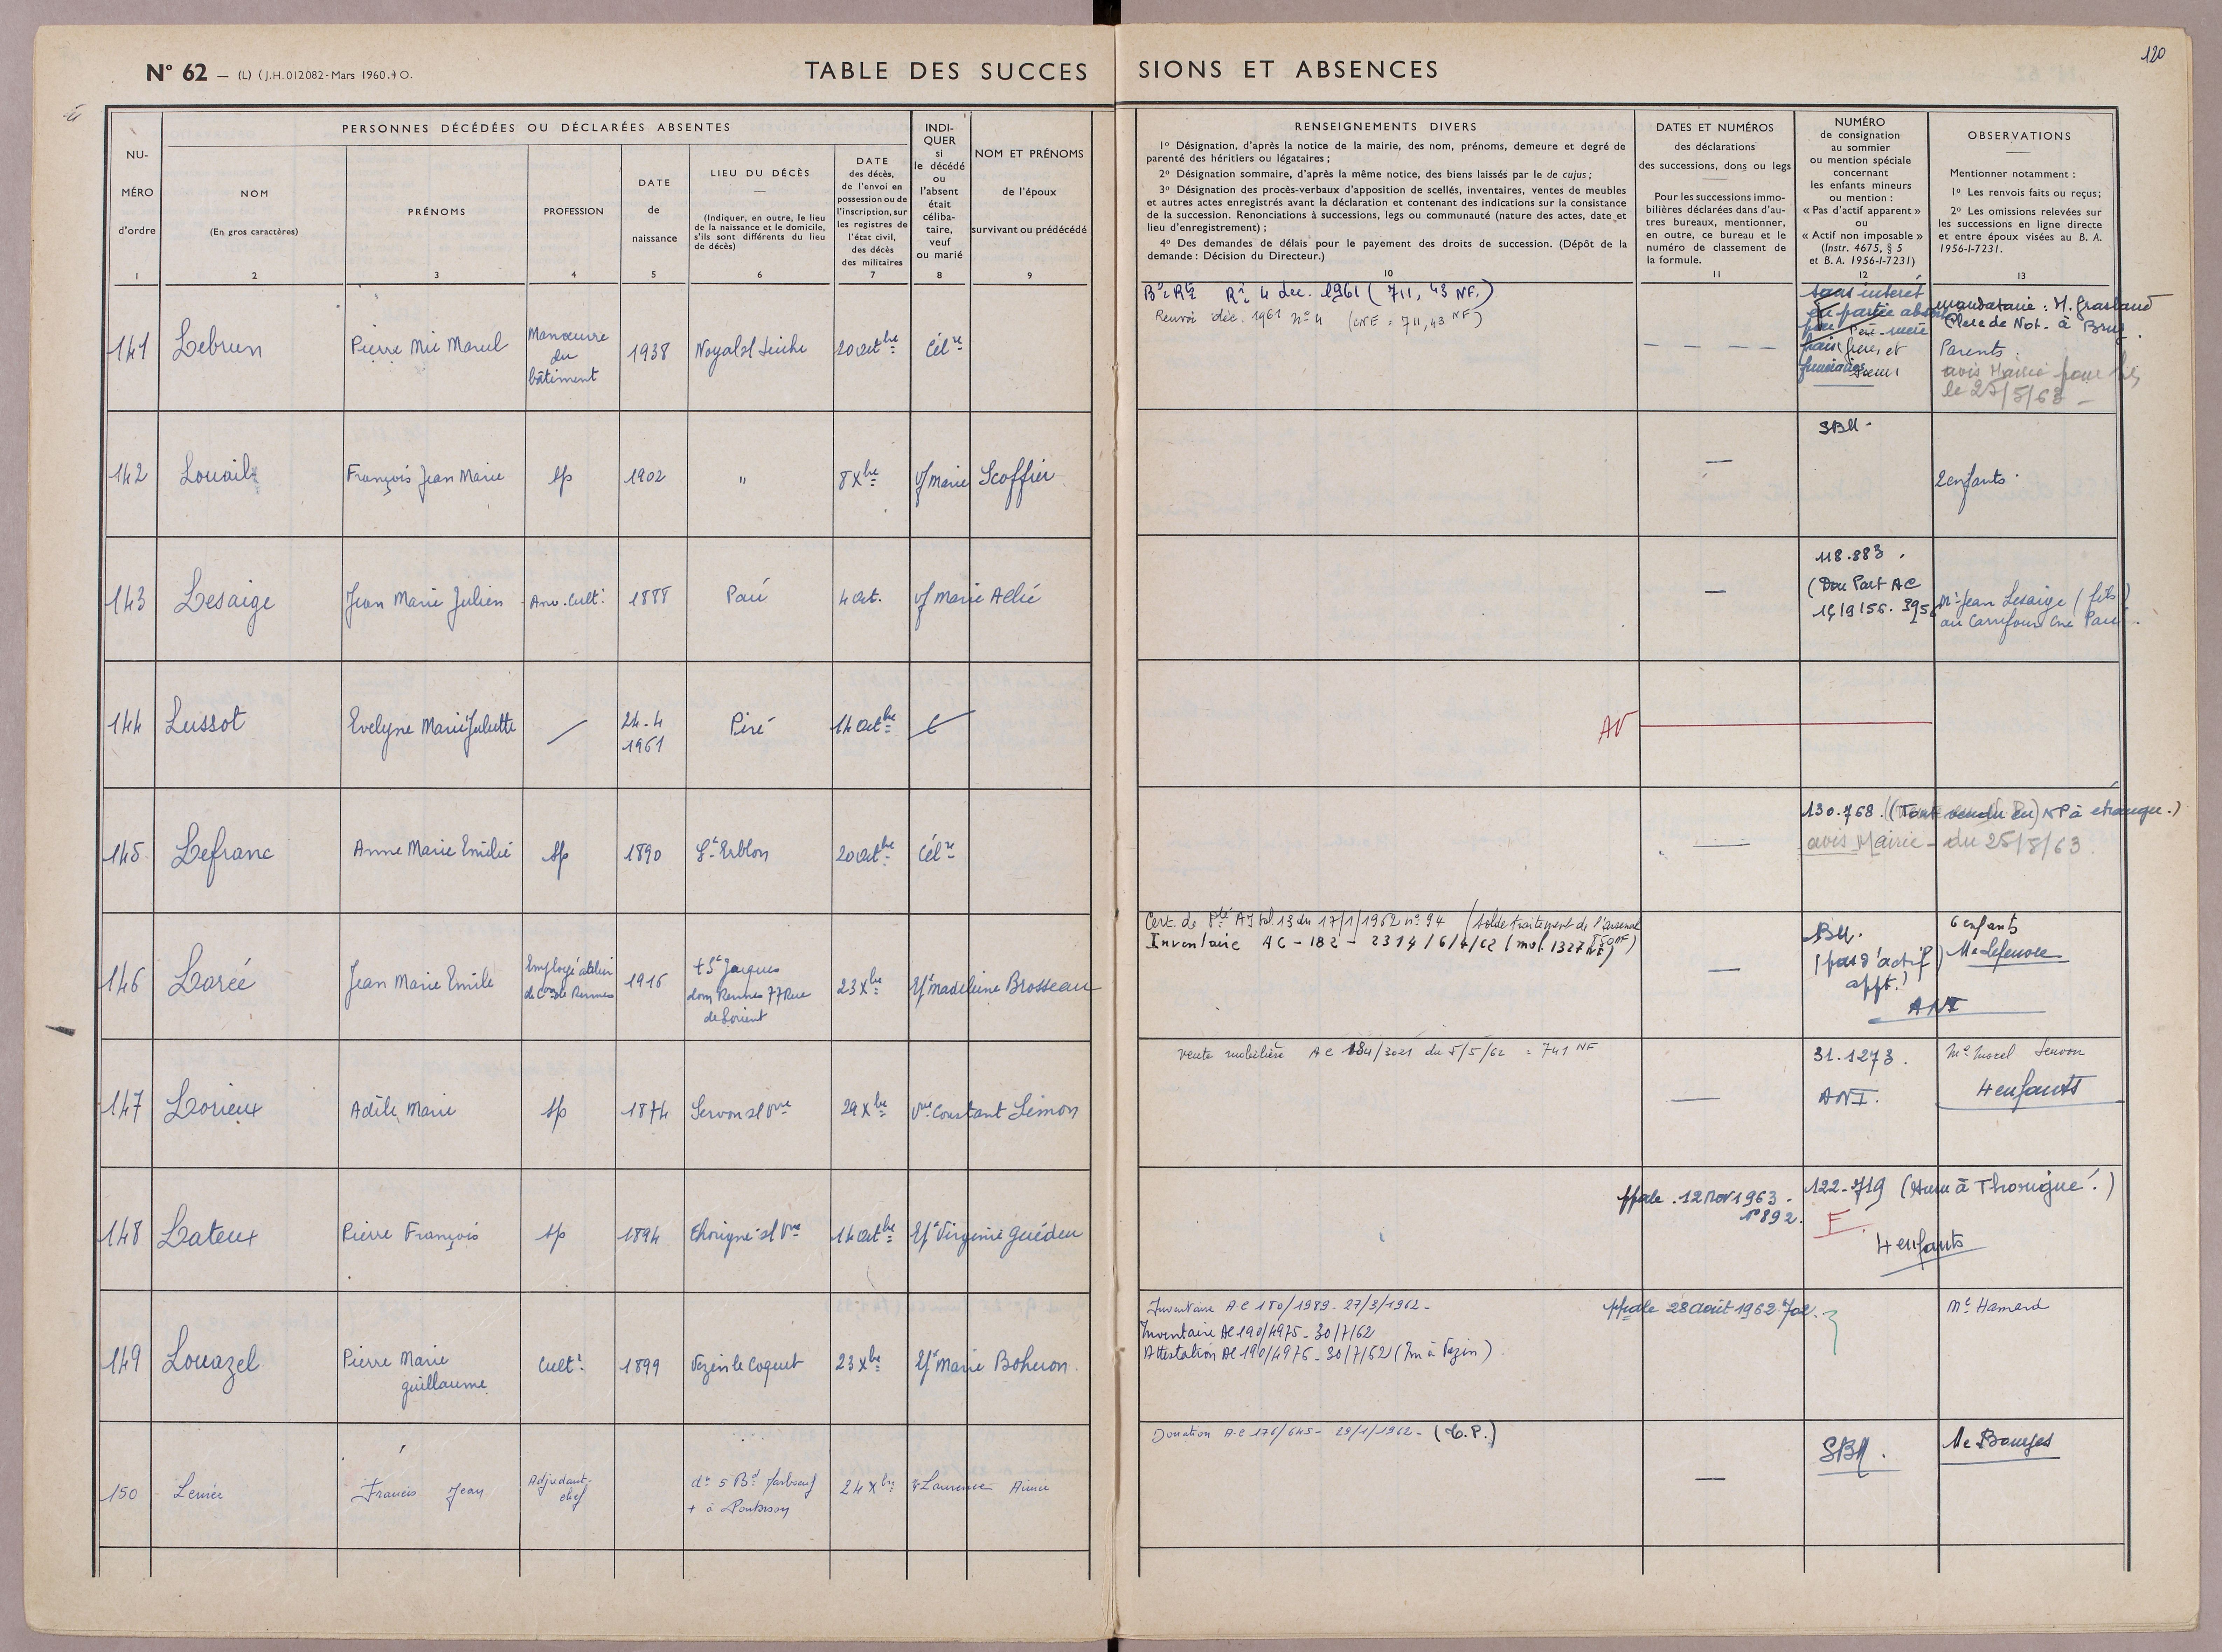 120
N° 62 — (L) (J.H. 012082 - Mars 1960.) O.
TABLE DES SUCCESSIONS ET ABSENCES
PERSONNES DÉCÉDÉES OU DÉCLARÉES ABSENTES
NU-
MÉRO
d'ordre
1
NOM
(En gros caractères)
2
PRÉNOMS
3
PROFESSION
4
DATE
de
naissance
5
LIEU DU DÉCÈS
(Indiquer, en outre, le lieu
de la naissance et le domicile,
s'ils sont différents du lieu
de décès)
6
DATE
des décès,
de l'envoi en
possession ou de
l'inscription, sur
les registres de
l'état civil,
des décès
des militaires
7
INDI-
QUER
si
le décédé
ou
l'absent
était
céliba-
taire,
veuf
ou marié
8
NOM ET PRÉNOMS
de l'époux
survivant ou prédécédé
9
RENSEIGNEMENTS DIVERS
1° Désignation, d'après la notice de la mairie, des nom, prénoms, demeure et degré de
parenté des héritiers ou légataires ;
2° Désignation sommaire, d'après la même notice, des biens laissés par le de cujus ;
3° Désignation des procès-verbaux d'apposition de scellés, inventaires, ventes de meubles
et autres actes enregistrés avant la déclaration et contenant des indications sur la consistance
de la succession. Renonciations à successions, legs ou communauté (nature des actes, date et
lieu d'enregistrement) ;
4° Des demandes de délais pour le payement des droits de succession. (Dépôt de la
demande : Décision du Directeur.)
10
DATES ET NUMÉROS
des déclarations
des successions, dons ou legs
Pour les successions immo-
bilières déclarées dans d'au-
tres bureaux, mentionner,
en outre, ce bureau et le
numéro de classement de
la formule.
11
NUMÉRO
de consignation
au sommier
ou mention spéciale
concernant
les enfants mineurs
ou mention :
« Pas d'actif apparent »
ou
« Actif non imposable »
(Instr. 4675, § 5
et B. A. 1956-I-7231)
12
OBSERVATIONS
Mentionner notamment :
1° Les renvois faits ou reçus;
2° Les omissions relevées sur
les successions en ligne directe
et entre époux visées au B. A.
1956-I-7231.
13
141 Lebrun Pierre Marie Marcel Manœuvre du bâtiment 1938 Noyal sl Seiche 20 octbre Célre
4 dec. 1961 (711, 43 NF.)
Renvoi déc. 1961 n° 4 (CNE = 711,43 NF)
sans intérêt
en partie
Père - mère
frais frères et
funéraires
mandataire : M.
Clerc de Not. à Bruz.
Parents.
avis Mairie pour
le 27/5/63 -
142 Louail François Jean Marie sp 1902 " 8 Xbre Vf Marie Scoffier
— SBM - 2 enfants.
143 Lesaige Jean Marie Julien Anc. Cultr 1888 Pacé 4 oct. Vf Marie Allié
— 118.883.
Mr Jean Lesaige (fils)
au Carrefour Cne Pacé.
144 Lussot Evelyne Marie Juliette 24-4 1961 Piré 14 octbre
145 Lefranc Anne Marie Emilie sp 1890 St Erblon 20 octbre Célre
— 130.768. (Tout vendu en NP à etranger.)
avis Mairie - du 25/8/63.
146 Lorée Jean Marie Emile Employé atelier de Rennes 1916 + St Jacques
dom Rennes 77 Rue
de Lorient
23 Xbre Ef Madeleine Brosseau
Cert. de Pté 13 du 17/1/1962 n° 94 / solde traitement de l'arsenal
Inventaire AC - 182 - 2314 / 6/4/62 (mob. 1327 NF)
— SBM.
(pas d'actif
appt.)
ANI
6 enfants
147 Lorieux Adèle Marie sp 1874 Servon sl Vne 29 Xbre Vve Constant Simon
Vente mobilière AC 184/3021 du 5/5/62 = 741 NF
— 31.1273.
ANI.
Me Morel Servon
4 enfants
148 Lateux Pierre François sp 1894 Thorigné sl Vne 14 octbre Ef Virginie Guédeu
ppale. 12 Nov 1963.
N° 892.
122-719 à Thorigné.)
F
4 enfants
149 Louazel Pierre Marie
Guillaume
Cultr 1899 Vezin le Coquet 23 Xbre Ef Marie Bohuon.
Inventaire AC 180/1989 - 27/3/1962 -
Inventaire AC 190/4975 - 30/7/62
Attestation AC 190/4976 - 30/7/62 (Im à Vezin).
ppale 28 août 1962. 702.
Me Hamard
150 Lemée Francis Jean Adjudant-
chef
5 Bd
+ à Pontorson
24 Xbre Laurence Aimée
Donation AC 176/645 - 29/1/1962 - (C.P.)
— SBM.
Me Bourges